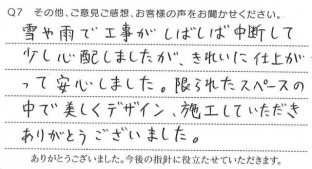 Q7 その他、ご意見ご感想、お客様の声をお聞かせください。
雪や雨で工事がしばしば中断して
少し心配しましたが、きれいに仕上が
って安心しました。限られたスペースの
中で美しくデザイン、施工していただき
ありがとうございました。
ありがとうございました。今後の指針に役立たせていただきます。